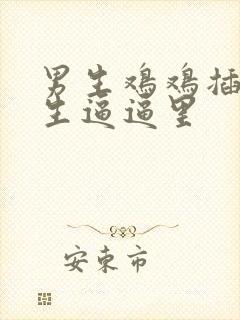 男生鸡鸡插
生逼逼里
安東市